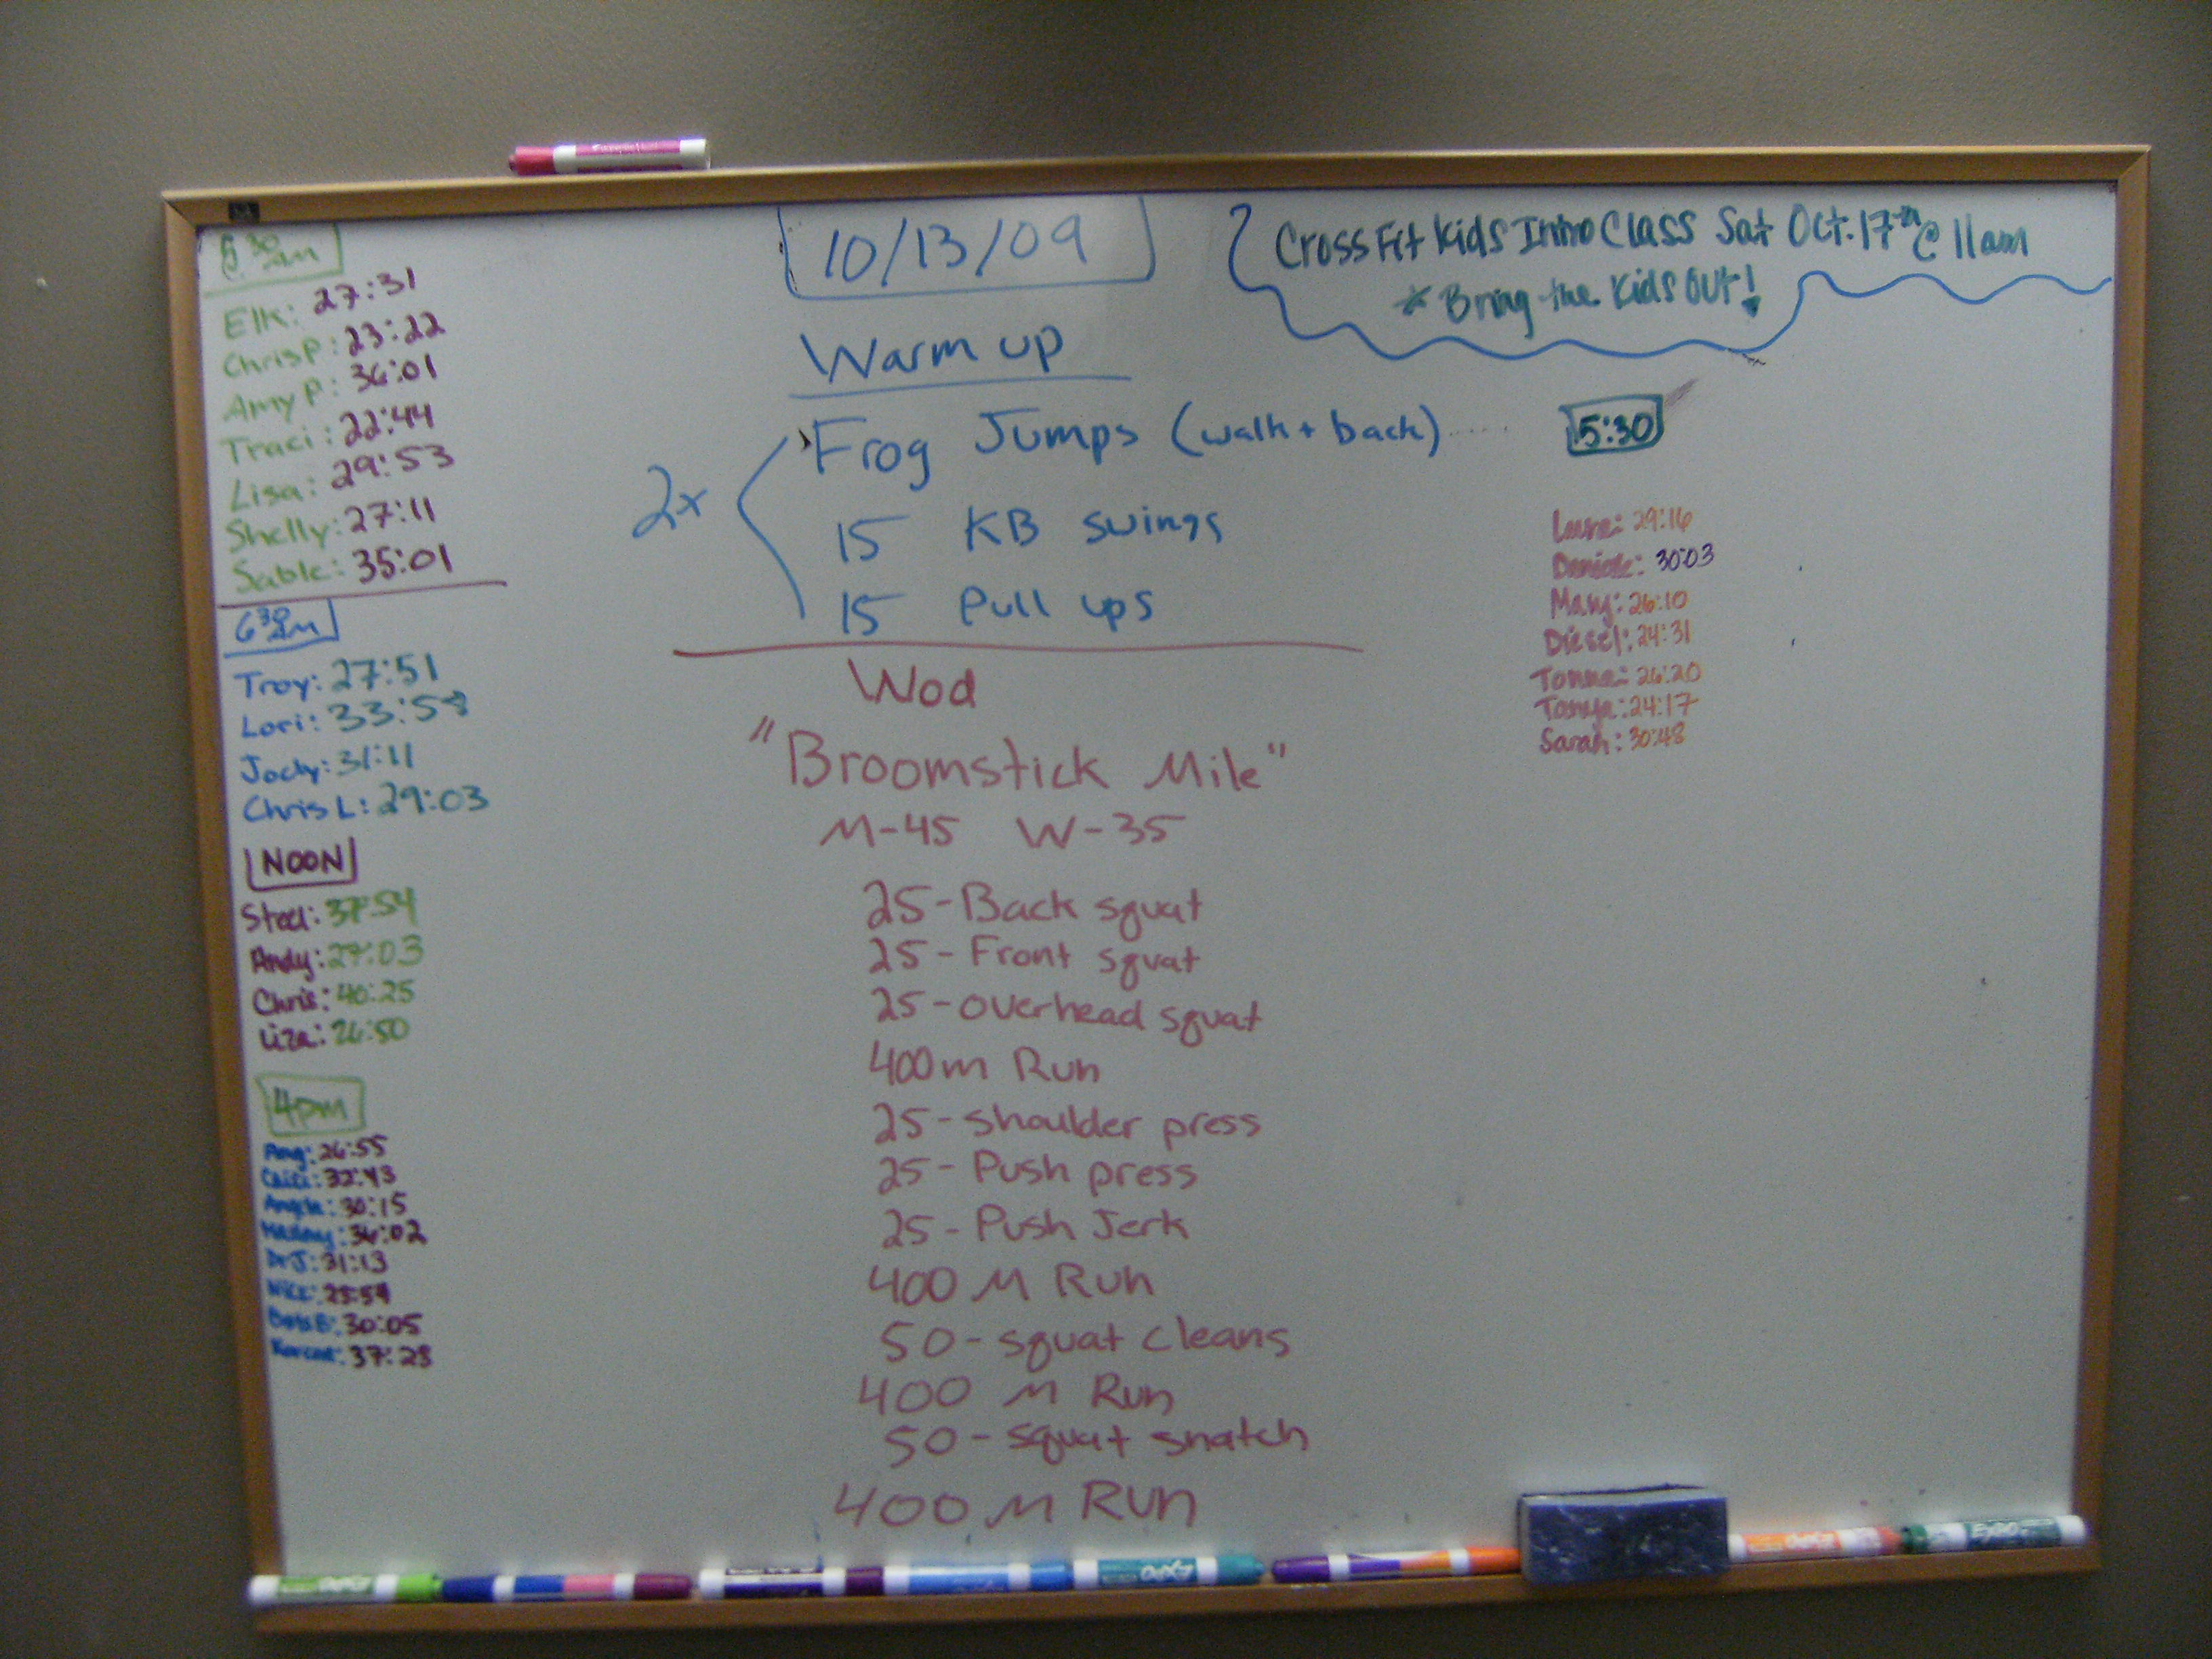 5:30 am
Elk: 27:31
Chris P: 23:22
Amy P: 36:01
Traci: 22:44
Lisa: 29:53
Shelly: 27:11
Sable: 35:01
6:30 am
Troy: 27:51
Lori: 33:58
Jocky: 31:11
Chris L: 29:03
NOON
37:54
Andy: 27:03
Chris: 40:25
Liza: 26:50
4pm
26:55
32:43
Angela: 30:15
36:02
Dr J: 31:13
Nick: 25:59
30:05
37:28
10/13/09
Warm up
2x
Frog Jumps (walk + back)
15 KB swings
15 Pull ups
Wod
"Broomstick Mile"
M-45 W-35
25-Back squat
25-Front squat
25-overhead squat
400m Run
25-shoulder press
25-Push press
25-Push Jerk
400 M Run
50-squat cleans
400 M Run
50-squat snatch
400 M Run
CrossFit Kids Intro Class Sat Oct. 17th @ 11am
* Bring the Kids Out!
5:30
29:16
30:03
26:10
Diesel: 24:31
26:20
Tanya: 24:17
Sarah: 30:48
EXPO